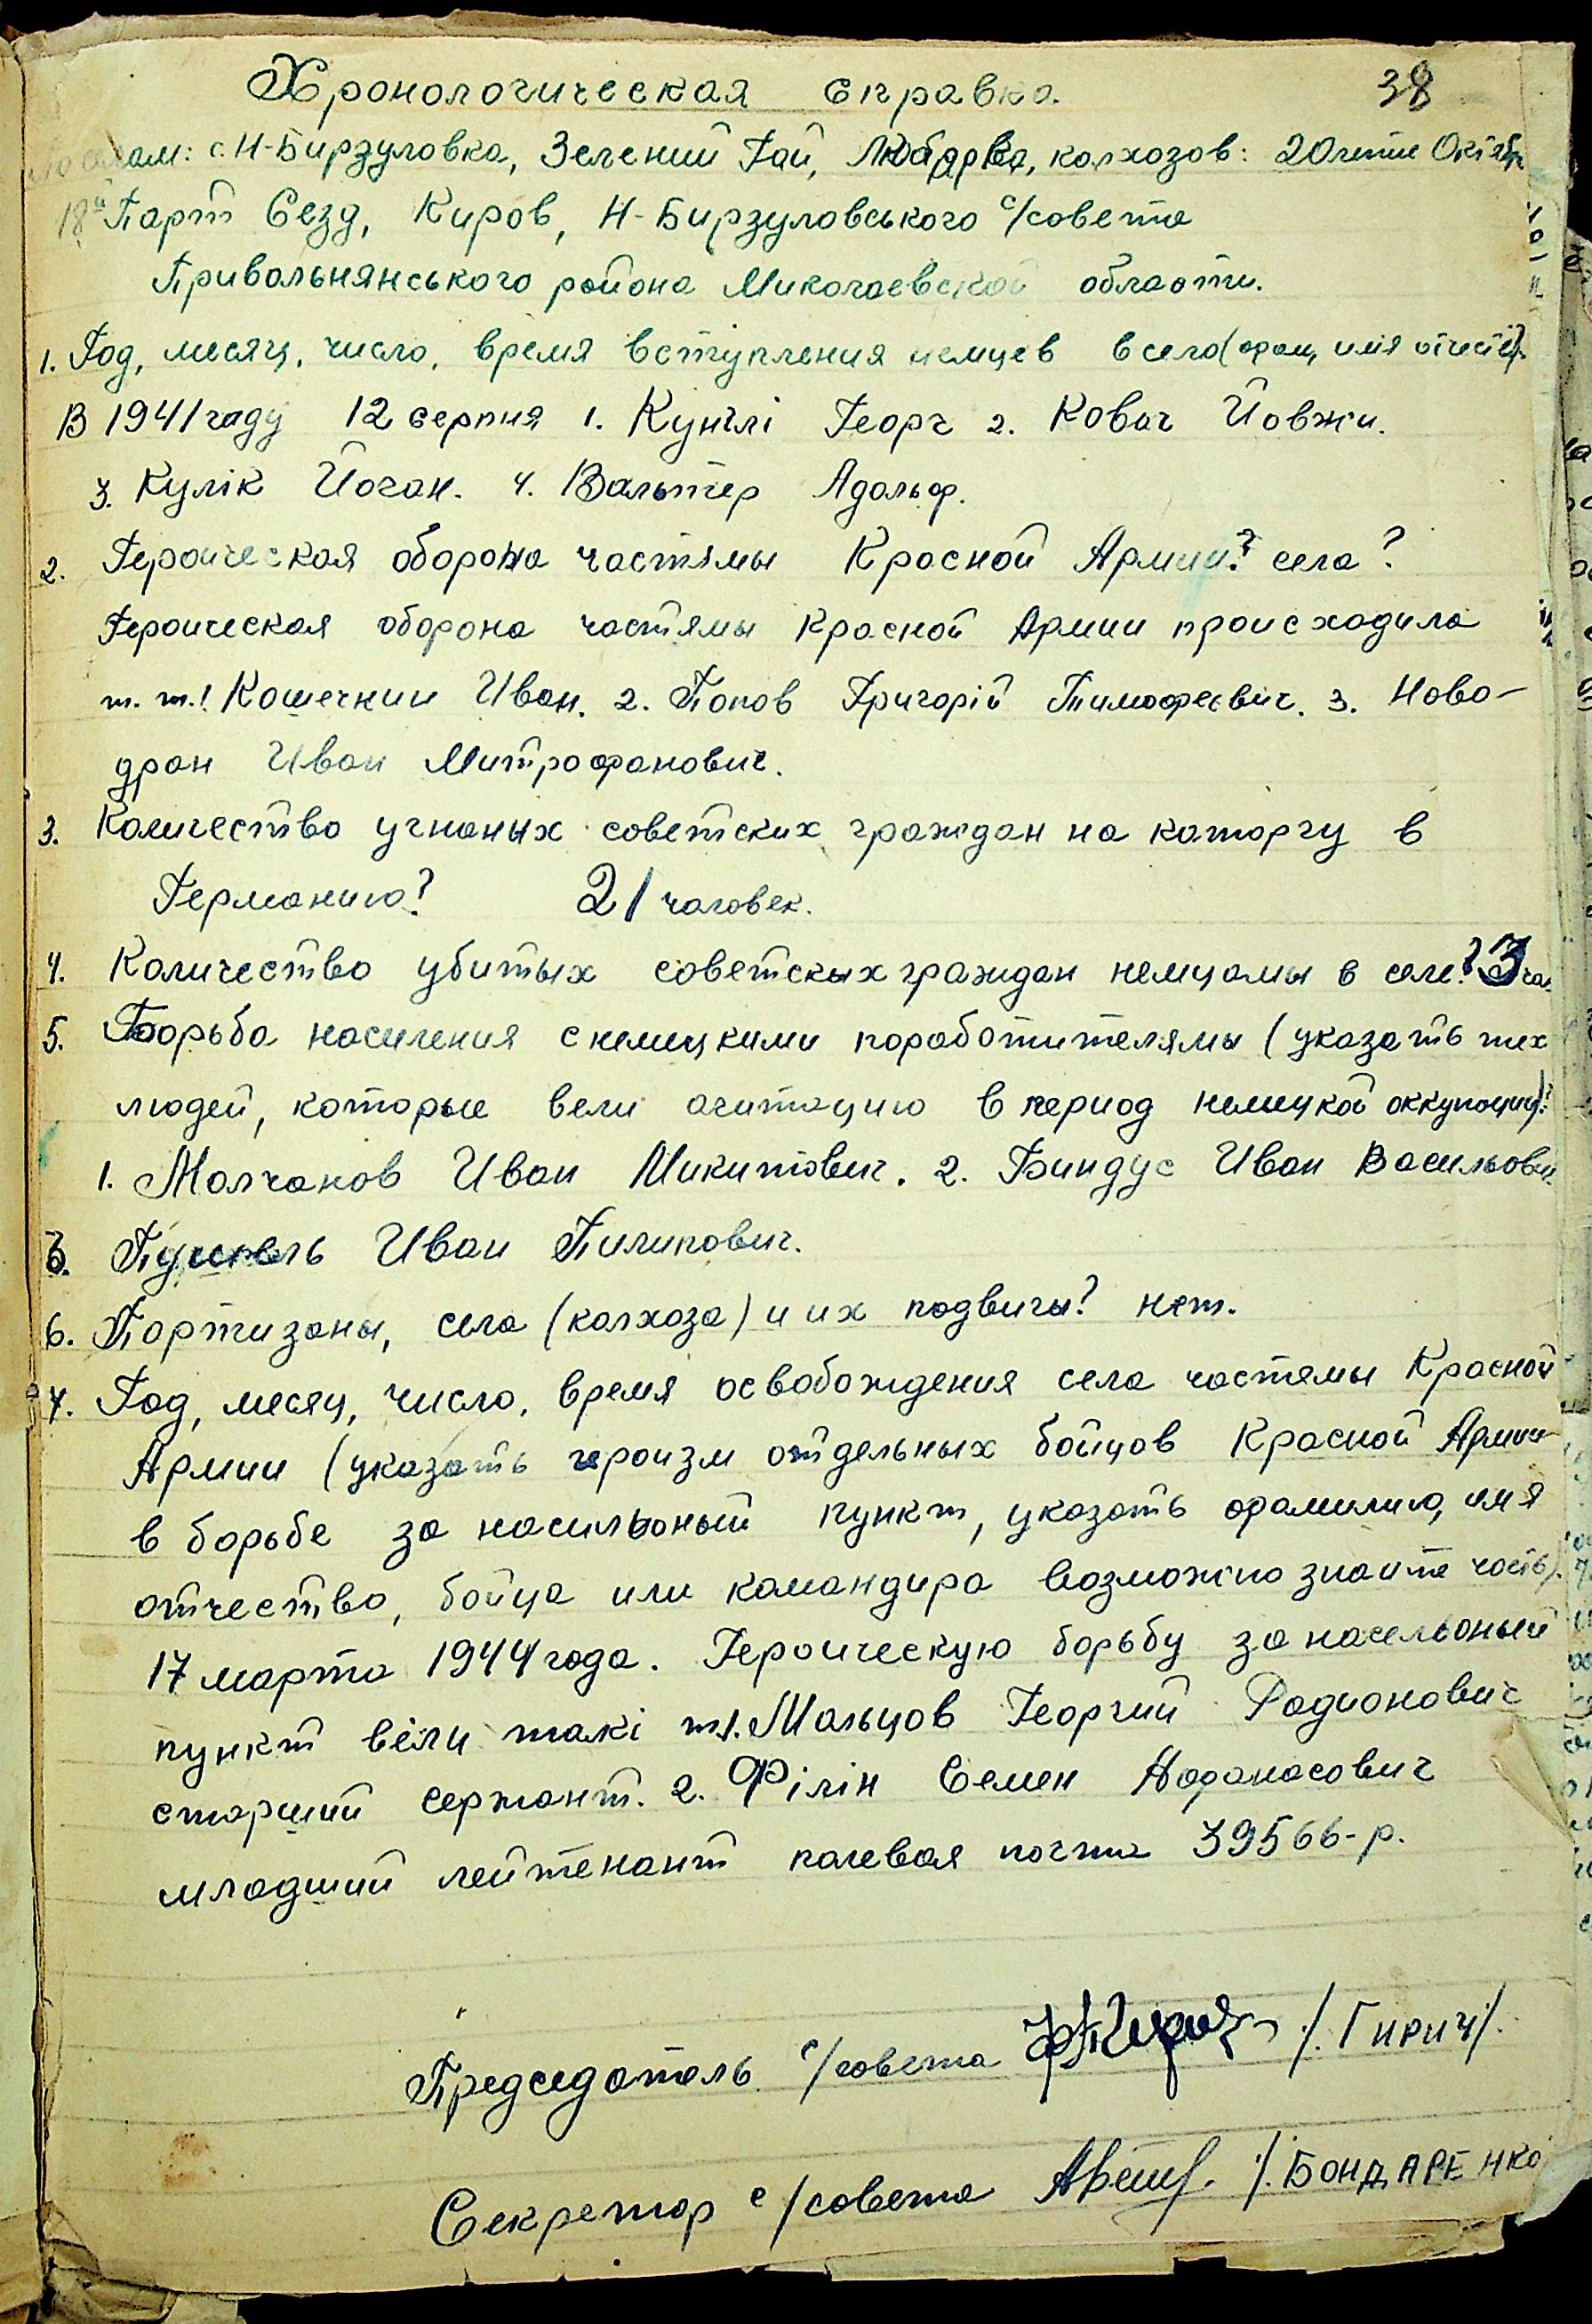 Хронологическая справка.
38
селам: с. Н-Бирзуловка, Зелений Гай, Любарка, колхозов: 20 летие Октябр
18й Парт Сезд, Киров, Н-Бирзуловського с/совета
Привольнянського района Миколаевской области.
1. Год, месяц, число, время вступления немцев в село (фам, имя отчеств)?
В 1941 году 12 серпня 1. Кунглі Георг 2. Ковач Йовжи.
3. Кулік Йоган. 4. Вальтер Адольф.
2. Героическая оборона частямы Красной Армии? села?
Героическая оборона частямы Красной Армии происходила
т. т. 1 Кошечкин Иван. 2. Попов Григорій Тимофеєвич. 3. Ново-
дран Иван Митрофанович.
3. Количество угнаных советских граждан на каторгу в
Германию? 21 человек.
4. Количество убитых советскых граждан немцамы в селе? 3 чел
5. Борьба насиления с немецкими поработителямы (указать тех
людей, которые вели агитацию в период немецкой оккупации)?
1. Молчанов Иван Микитович. 2. Биндус Иван Васильович
3. Иван Пилипович.
6. Портизаны, села (колхоза) и их подвигы? нет.
7. Год, месяц, число, время освобождения села частямы Красной
Армии (указать героизм отдельных бойцов Красной Армии
в борьбе за насильоный пункт, указать фамилию, имя
отчество, бойца или командира возможно знаите часть).
17 марта 1944 года. Героическую борьбу за насельоный
пункт вели такі т1. Мальцов Георгий Родионович
старший сержант. 2. Філін Семен Афанасович
младший лейтенант полевая почта 39566-р.
Председатель с/совета /. Гирич/.
Секретар с/совета /. БОНДАРЕНКО